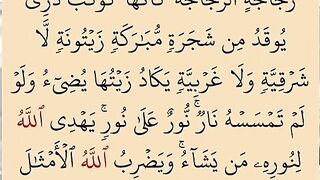 زُجَاجَةٍ ٱلزُّجَاجَةُ كَأَنَّهَا كَوْكَبٌ دُرِّيٌّ
يُوقَدُ مِن شَجَرَةٍ مُّبَٰرَكَةٍ زَيْتُونَةٍ لَّا
شَرْقِيَّةٍ وَلَا غَرْبِيَّةٍ يَكَادُ زَيْتُهَا يُضِىٓءُ وَلَوْ
لَمْ تَمْسَسْهُ نَارٌ ۚ نُّورٌ عَلَىٰ نُورٍ ۗ يَهْدِى ٱللَّهُ
لِنُورِهِۦ مَن يَشَآءُ ۚ وَيَضْرِبُ ٱللَّهُ ٱلْأَمْثَٰلَ